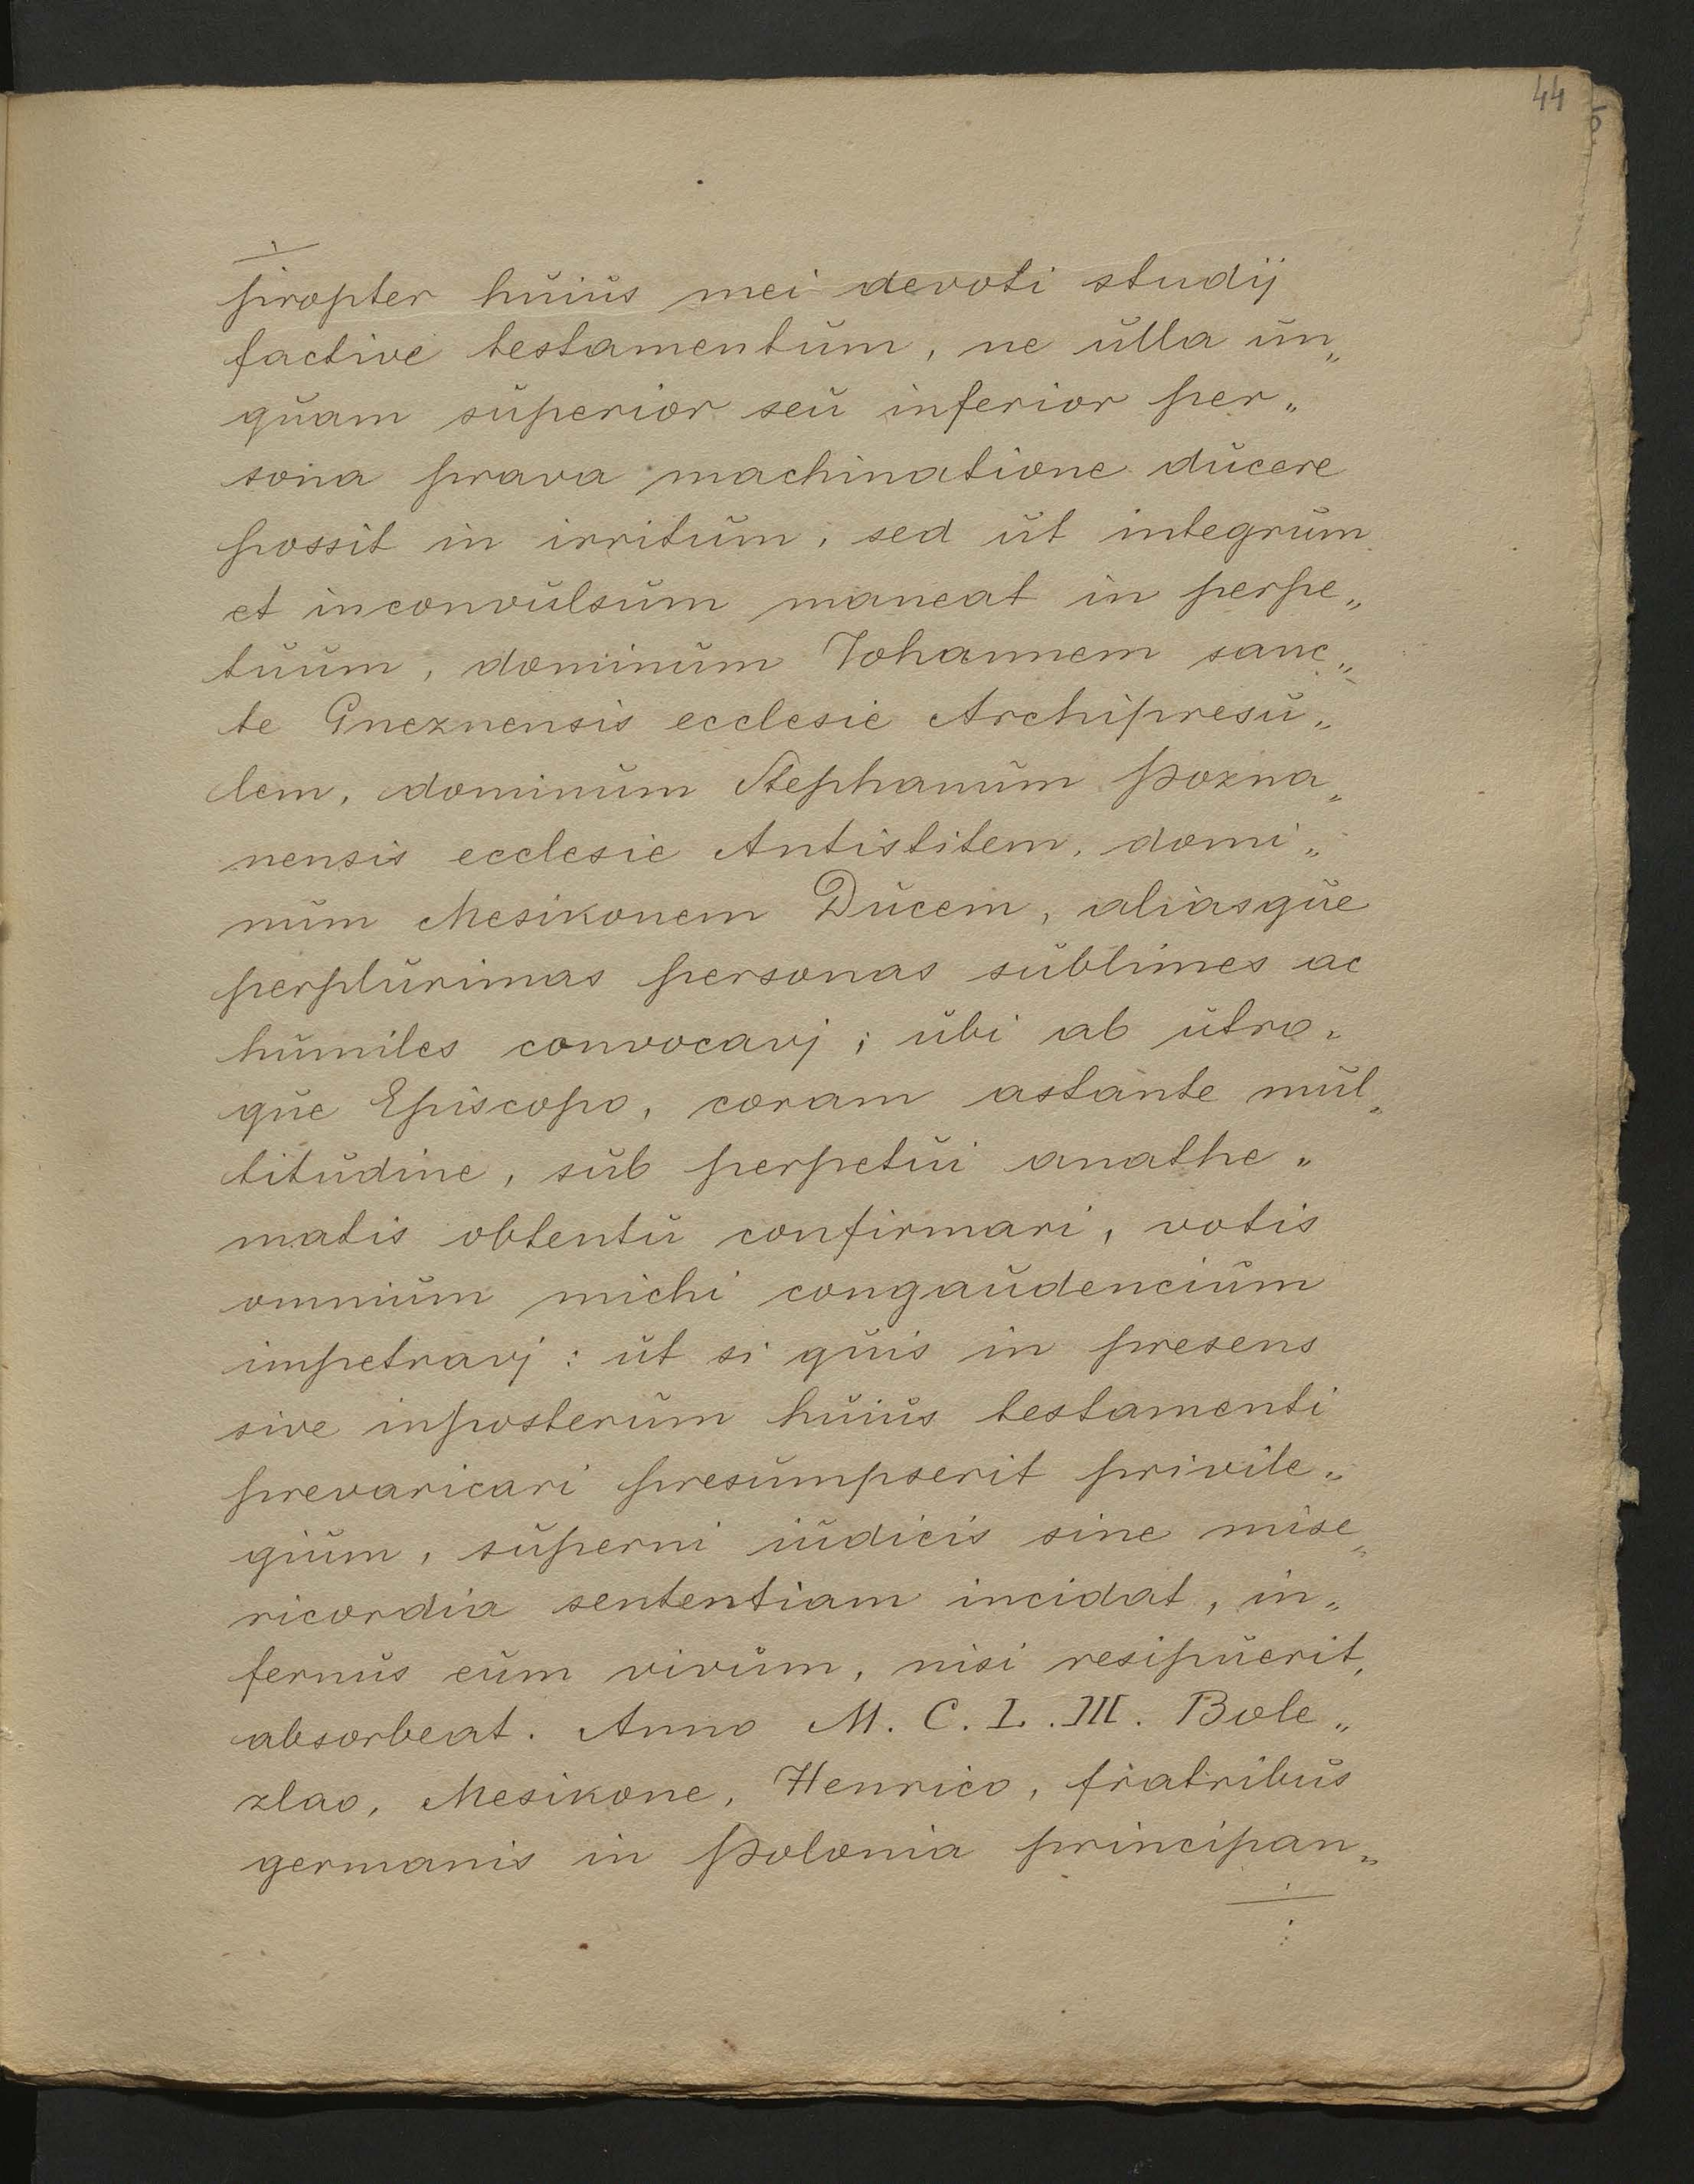 44
propter huius mei devoti studij
factive testamentum, ne ulla un„
quam superior seu inferior per„
sona prava machinatione ducere
possit in irritum, sed ut integrum
et inconvulsum maneat in perpe„
tuum, dominum Johannem sanc„
te Gneznensis ecclesie Archipresu„
lem, dominum Stephanum Pozna„
nensis ecclesie Antistitem, domi„
num Mesikonem Ducem, aliasque
perplurimas personas sublimes ac
humiles convocavj; ubi ab utro„
que Episcopo, coram astante mul„
titudine, sub perpetui anathe„
matis obtentu confirmari, votis
omnium michi congaudencium
impetravj: ut si quis in presens
sive inposterum huius testamenti
prevaricari presumpserit privile„
gium, superni iudicis sine mise„
ricordia sententiam incidat, in„
fernus eum vivum, nisi resipuerit,
absorbeat. Anno M. C. L. III. Bole„
zlao, Mesikone, Henrico, fratribus
germanis in Polonia principan„